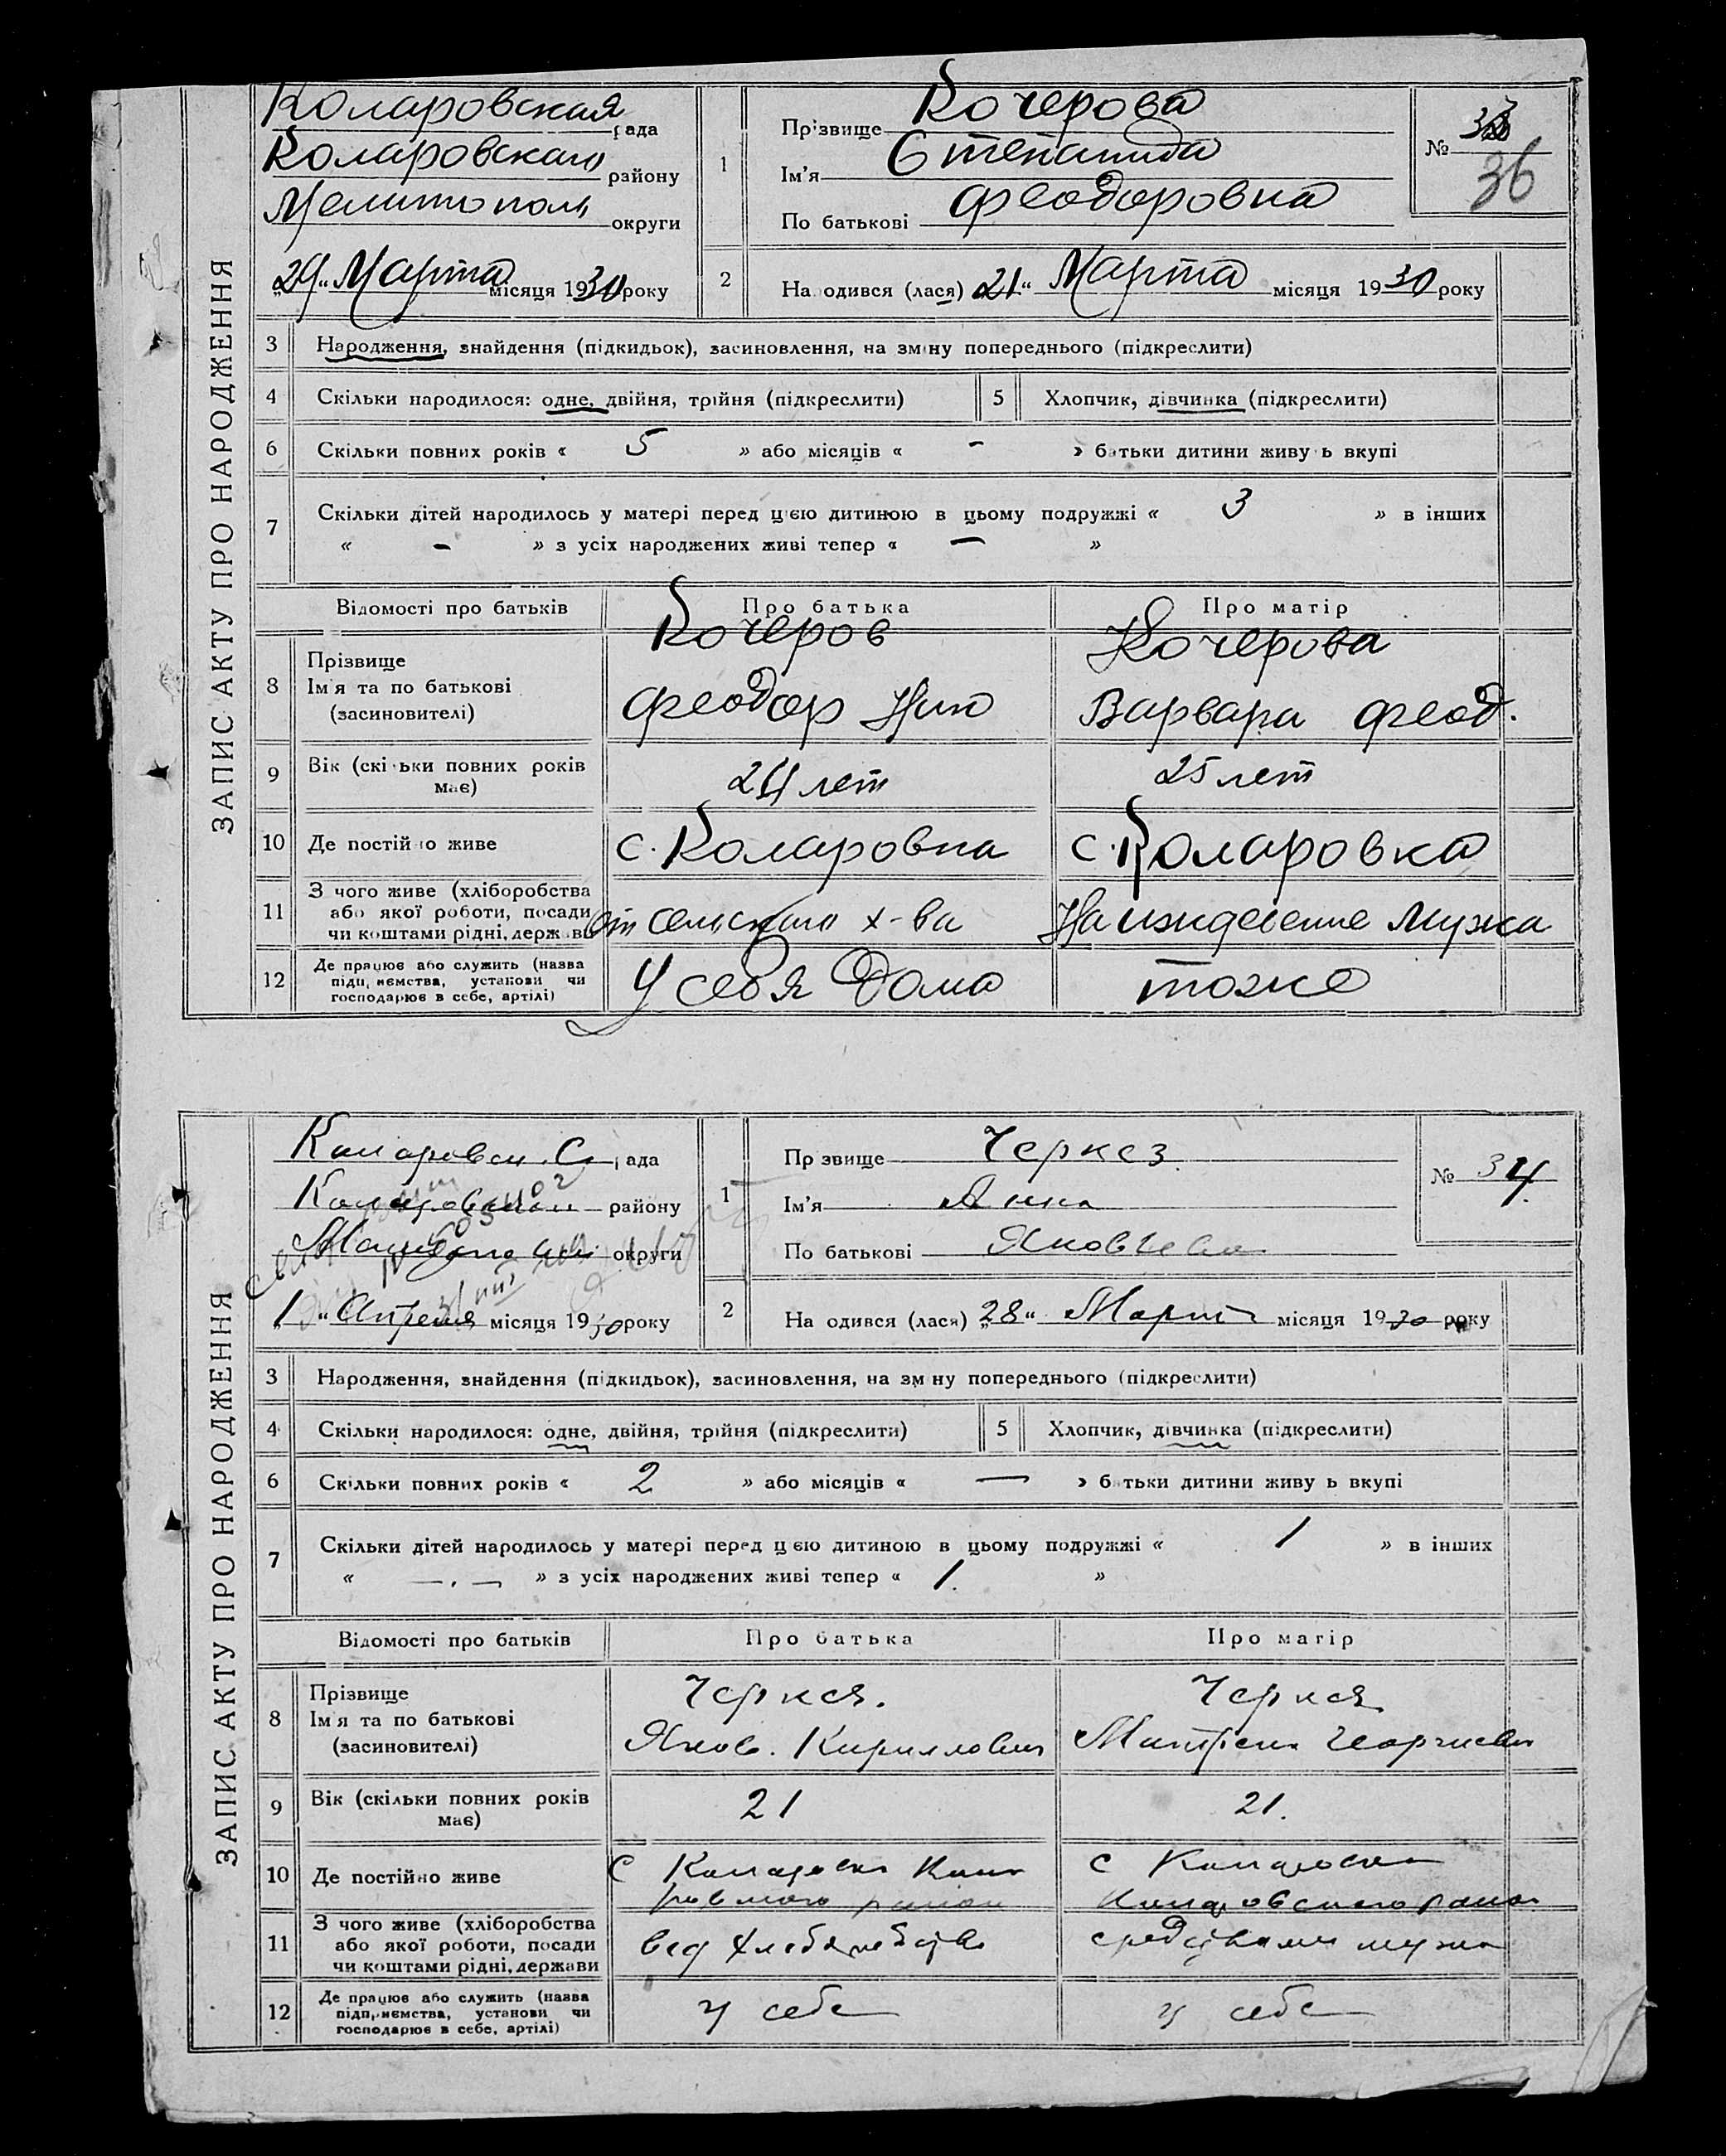 ЗАПИС АКТУ ПРО НАРОДЖЕННЯ
Коларовская рада
Коларовскаго району
Мелитополь округи
„29“ Марта місяця 1930 року
1
Прізвище Кочерова
Ім'я Степанида
По батькові Феодоровна
№ 33
36
2 Народився (лася) „21“ Марта місяця 1930 року
3 Народження, знайдення (підкидьок), засиновлення, на зміну попереднього (підкреслити)
4 Скільки народилося: одне, двійня, трійня (підкреслити) 5 Хлопчик, дівчинка (підкреслити)
6 Скільки повних років « 5 » або місяців « - » батьки дитини живуть вкупі
7 Скільки дітей народилось у матері перед цією дитиною в цьому подружжі « 3 » в інших
« - » з усіх народжених живі тепер « — »
Відомості про батьків Про батька Про матір
8 Прізвище Кочеров Кочерова
Ім'я та по батькові Феодор Ник Варвара Феод.
(засиновителі)
9 Вік (скільки повних років має) 24 лет 25 лет
10 Де постійно живе с. Коларовка с. Коларовка
11 З чого живе (хліборобства
або якої роботи, посади
чи коштами рідні, держави от сельскаго х-ва На иждевение мужа
12 Де працює або служить (назва
підприємства, установи чи
господарює в себе, артілі) У себя дома тоже
ЗАПИС АКТУ ПРО НАРОДЖЕННЯ
Коларовск. С. рада
Коларовского району
округи
„1“ Апреля місяця 1930 року
1
Прізвище Черкез
Ім'я Анна
По батькові Яковлевна
№ 34
2 Народився (лася) „28“ Марта місяця 1930 року
3 Народження, знайдення (підкидьок), засиновлення, на зміну попереднього (підкреслити)
4 Скільки народилося: одне, двійня, трійня (підкреслити) 5 Хлопчик, дівчинка (підкреслити)
6 Скільки повних років « 2 » або місяців « — » батьки дитини живуть вкупі
7 Скільки дітей народилось у матері перед цією дитиною в цьому подружжі « 1 » в інших
« —.— » з усіх народжених живі тепер « 1. »
Відомості про батьків Про батька Про матір
8 Прізвище Черкез. Черкез
Ім'я та по батькові Яков. Кириллович Матрена Георгиевн
(засиновителі)
9 Вік (скільки повних років має) 21 21.
10 Де постійно живе С Коларовка Кола с Коларовка
ровского район Коларовского район
11 З чого живе (хліборобства
або якої роботи, посади
чи коштами рідні, держави вед хлебопашество средствами мужа
12 Де працює або служить (назва
підприємства, установи чи
господарює в себе, артілі) у себе у себе